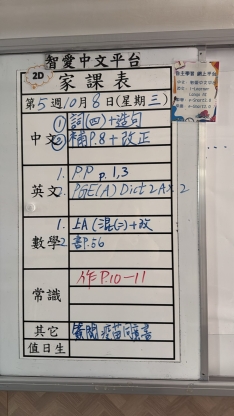 智愛中文平台
2D
家課表
第5週10月8日(星期三)
中文
① 詞(四)+造句
② 補P.8+改正
英文
1. PP p.1,3
2. PGE(A) Dict 2 Ax 2
數學
1. 上A(混(二)+改
2. 書P.56
常識
作P.10-11
其它
簽閱疫苗同意書
值日生
自主學習 網上平台